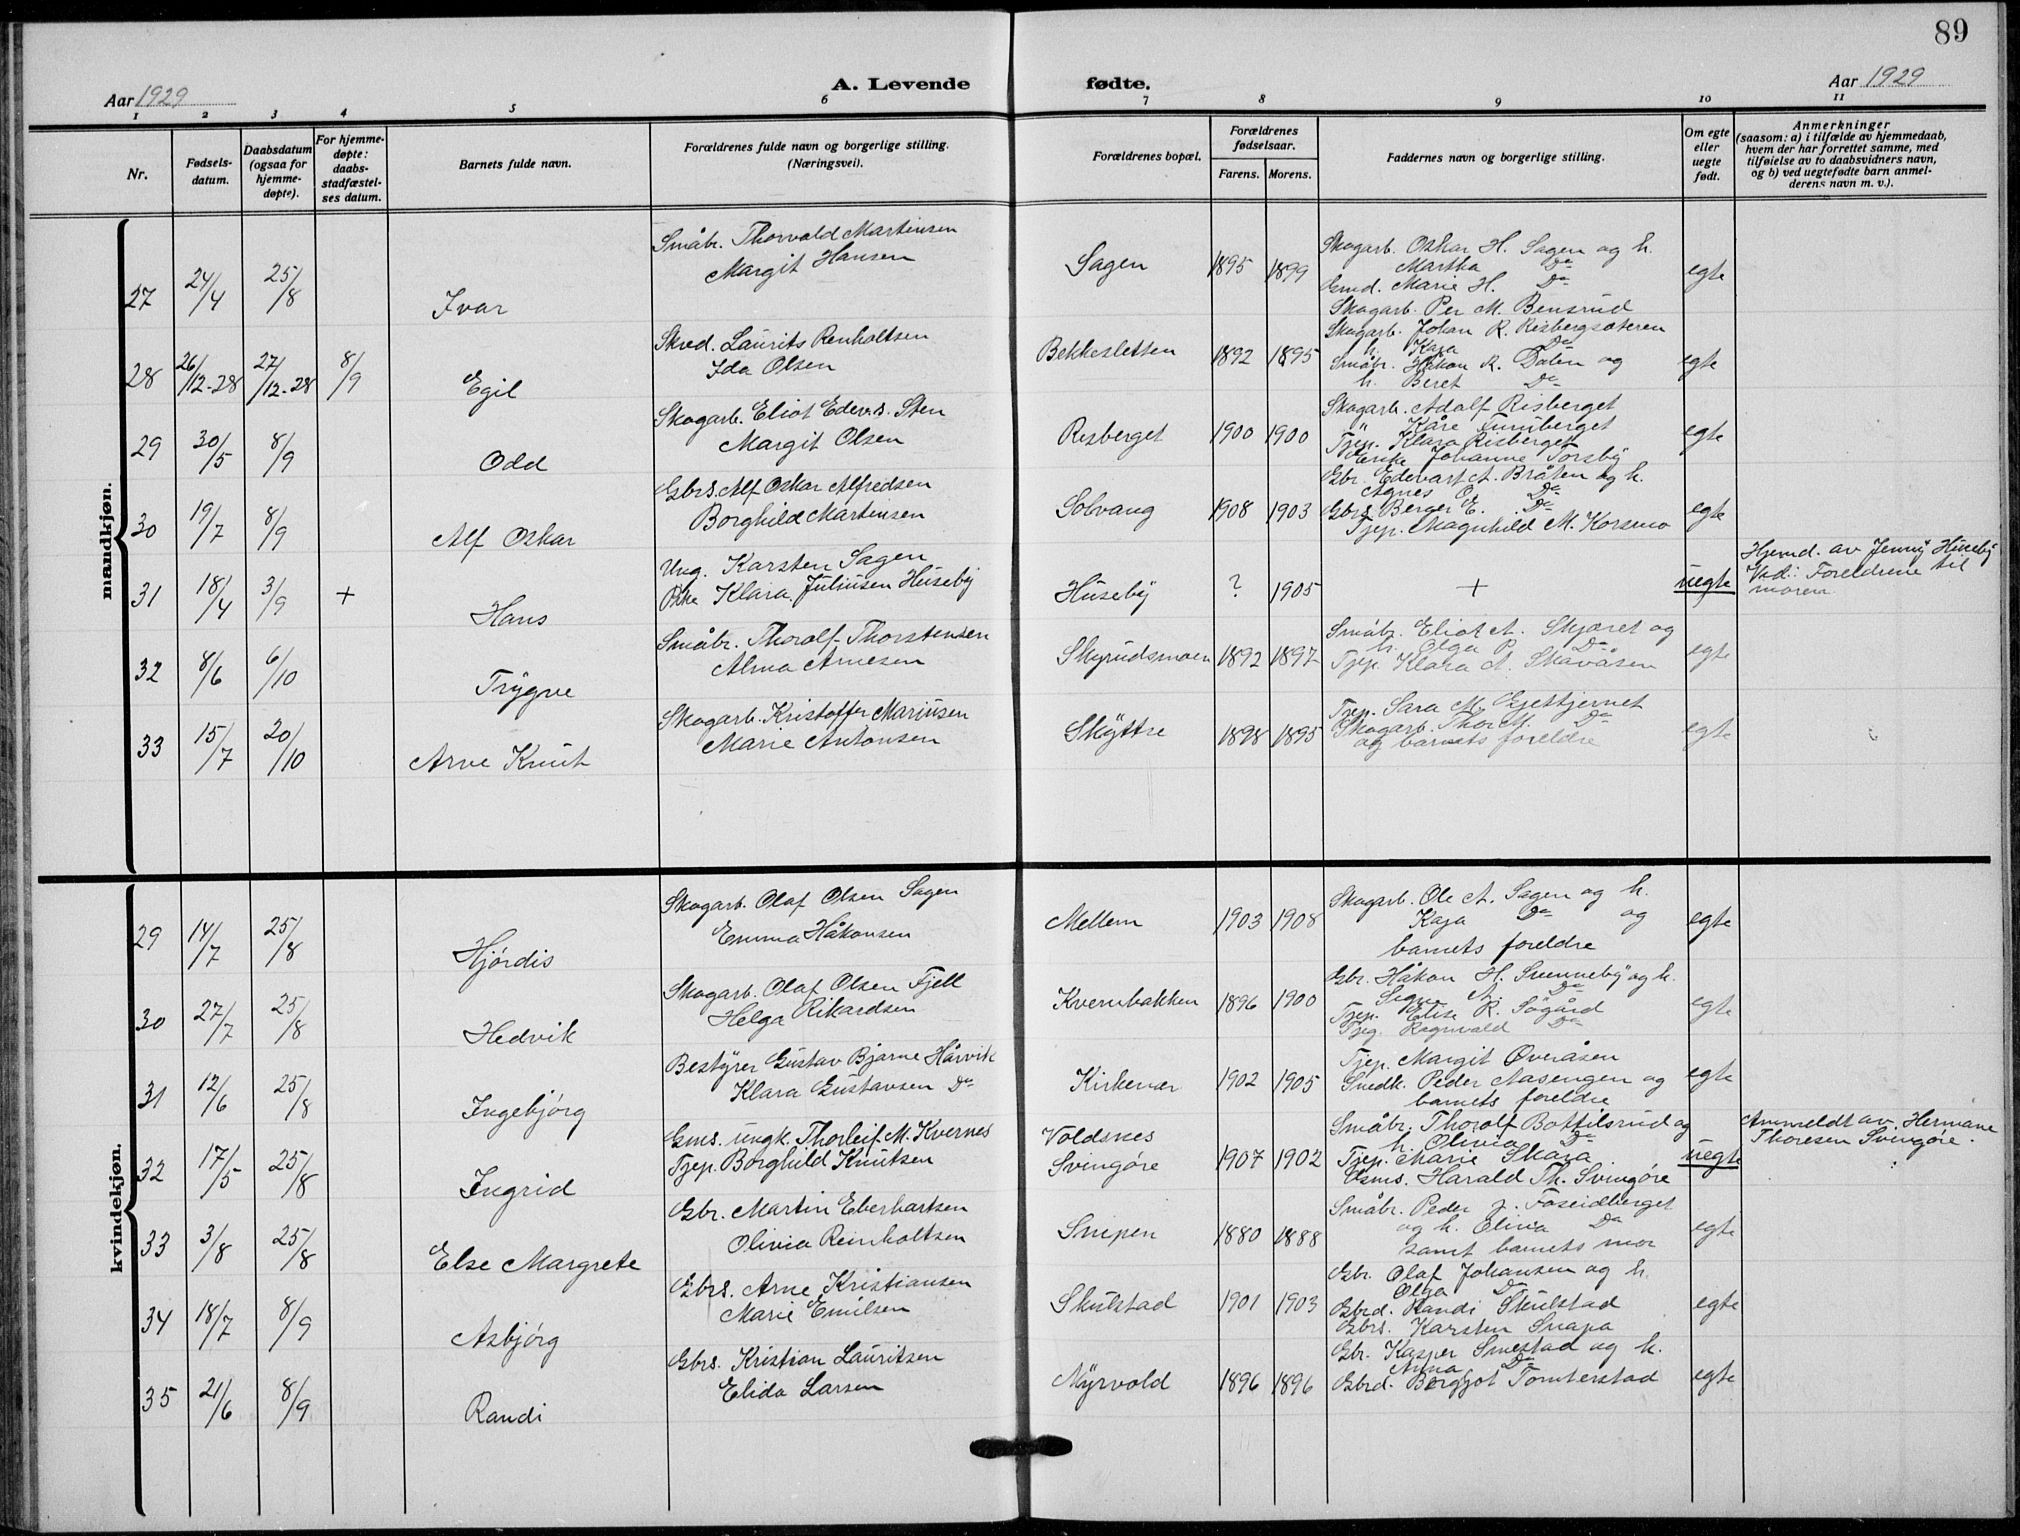 89
Aar 1929
A. Levende fødte.
Aar 1929
1 2 3 4 5 6 7 8 9 10 11
Nr.
Fødsels-
datum.
Daabsdatum
(ogsaa for
hjemme-
døpte).
For hjemme-
døpte:
daabs-
stadfæstel-
ses datum.
Barnets fulde navn.
Forældrenes fulde navn og borgerlige stilling.
(Næringsvei).
Forældrenes bopæl.
Forældrenes
fødselsaar.
Farens. Morens.
Faddernes navn og borgerlige stilling.
Om egte
eller
uegte
født.
Anmerkninger
(saasom: a) i tilfælde av hjemmedaab,
hvem der har forrettet samme, med
tilføielse av to daabsvidners navn,
og b) ved uegtefødte barn anmel-
derens navn m. v.).
mandkjøn.
27 24/4 25/8 Ivar
Småbr. Thorvald Martinsen
Margit Hansen
Sagen 1895 1899
Skogarb. Oskar H. Sagen og h.
Martha Do
Gmd. Marie H. Do
Skogarb. Per M. Bensrud
egte
28 26/12-28 27/12-28 8/9 Egil
Skred. Laurits Renholtsen
Ida Olsen
Bekkesletten 1892 1895
Skogarb. Johan R. Risbergsæteren
h. Kaja Do
Småbr. Håkon R. Dalen og
h. Beret Do
egte
29 30/5 8/9 Odd
Skogarb. Eliot Edev.s. Sten
Margit Olsen
Risberget 1900 1900
Skogarb. Adolf Risberget
" Kåre Furuberget
Tjep. Klara Risberget
Enke Johanne Torsby
egte
30 19/7 8/9 Alf Oskar
Gbrs. Alf Oskar Alfredsen
Borghild Martinsen
Solvang 1908 1903
Gbr. Edevart A. Bråten og h.
Agnes O. Do
Gbrs. Berger E. Do
Tjep. Magnhild M. Korsmo
egte
31 18/4 3/9 + Hans
Ung. Karsten Sagen
Pike Klara Juliusen Huseby
Huseby ? 1905
+
uegte
Hjemd. av Jenny Huseby
Vid.: Foreldrene til
moren
32 8/6 6/10 Trygve
Småbr. Thorolf Thorstensen
Alma Arnesen
Skyrudsmoen 1892 1897
Småbr. Eliot A. Skjæret og
h. Olga P. Do
Tjep. Klara A. Skavåsen
egte
33 15/7 20/10 Arve Knut
Skogarb. Kristoffer Mariusen
Marie Antonsen
Skyttre 1898 1895
Tjep. Sara M. Gjettjernet
Skogarb. Thor M. Do
og barnets foreldre
egte
kvindekjøn.
29 14/7 25/8 Hjørdis
Skogarb. Olaf Olsen Sagen
Emma Håkonsen
Mellem 1903 1908
Skogarb. Ole A. Sagen og h.
Kaja Do og
barnets foreldre
egte
30 27/7 25/8 Hedvik
Skogarb. Olaf Olsen Fjell
Helga Rikardsen
Kvernbakken 1896 1900
Gbr. Håkon H. Sunneby og h.
Signe A. Do
Tjep. Elise R. Sögård
Tjeg. Ragnvald Do
egte
31 12/6 25/8 Ingebjørg
Bestyrer Gustav Bjarne Hårvik
Klara Gustavsen Do
Kirkenær 1902 1905
Tjep. Margit Overåsen
Snedk. Peder Aasengen og
barnets foreldre
egte
32 17/5 25/8 Ingrid
Gms. ungk. Thorleif M. Kvernes
Tjep. Borghild Knutsen
Voldsnes
Svingøre 1907 1902
Småbr. Thorolf Bottilsrud og
h. Olivia Do
Tjep. Marie Skara
Gms. Harald Th. Svingøre
uegte
Anmeldt av Hermane
Thoresen Svingøre.
33 3/8 25/8 Else Margrete
Gbr. Martin Eberhartsen
Olivia Reinholtsen
Snipen 1880 1888
Småbr. Peder J. Foseidberget
og h. Olivia Do
samt barnets mor
egte
34 18/7 8/9 Asbjörg
Gbrs. Arne Kristiansen
Marie Emilsen
Skulstad 1901 1903
Gbr. Olaf Johansen og h.
Olga Do
Gbrd. Randi Skulstad
Gbrs. Karsten Snapa
egte
35 21/6 8/9 Randi
Gbrs. Kristian Lauritsen
Elida Larsen
Myrvold 1896 1896
Gbr. Kasper Smestad og h.
Anna Do
Gbrd. Bergjot Tomterstad
egte